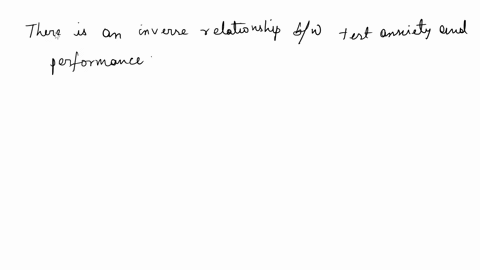 There is an inverse relationship b/w test anxiety and
performance.